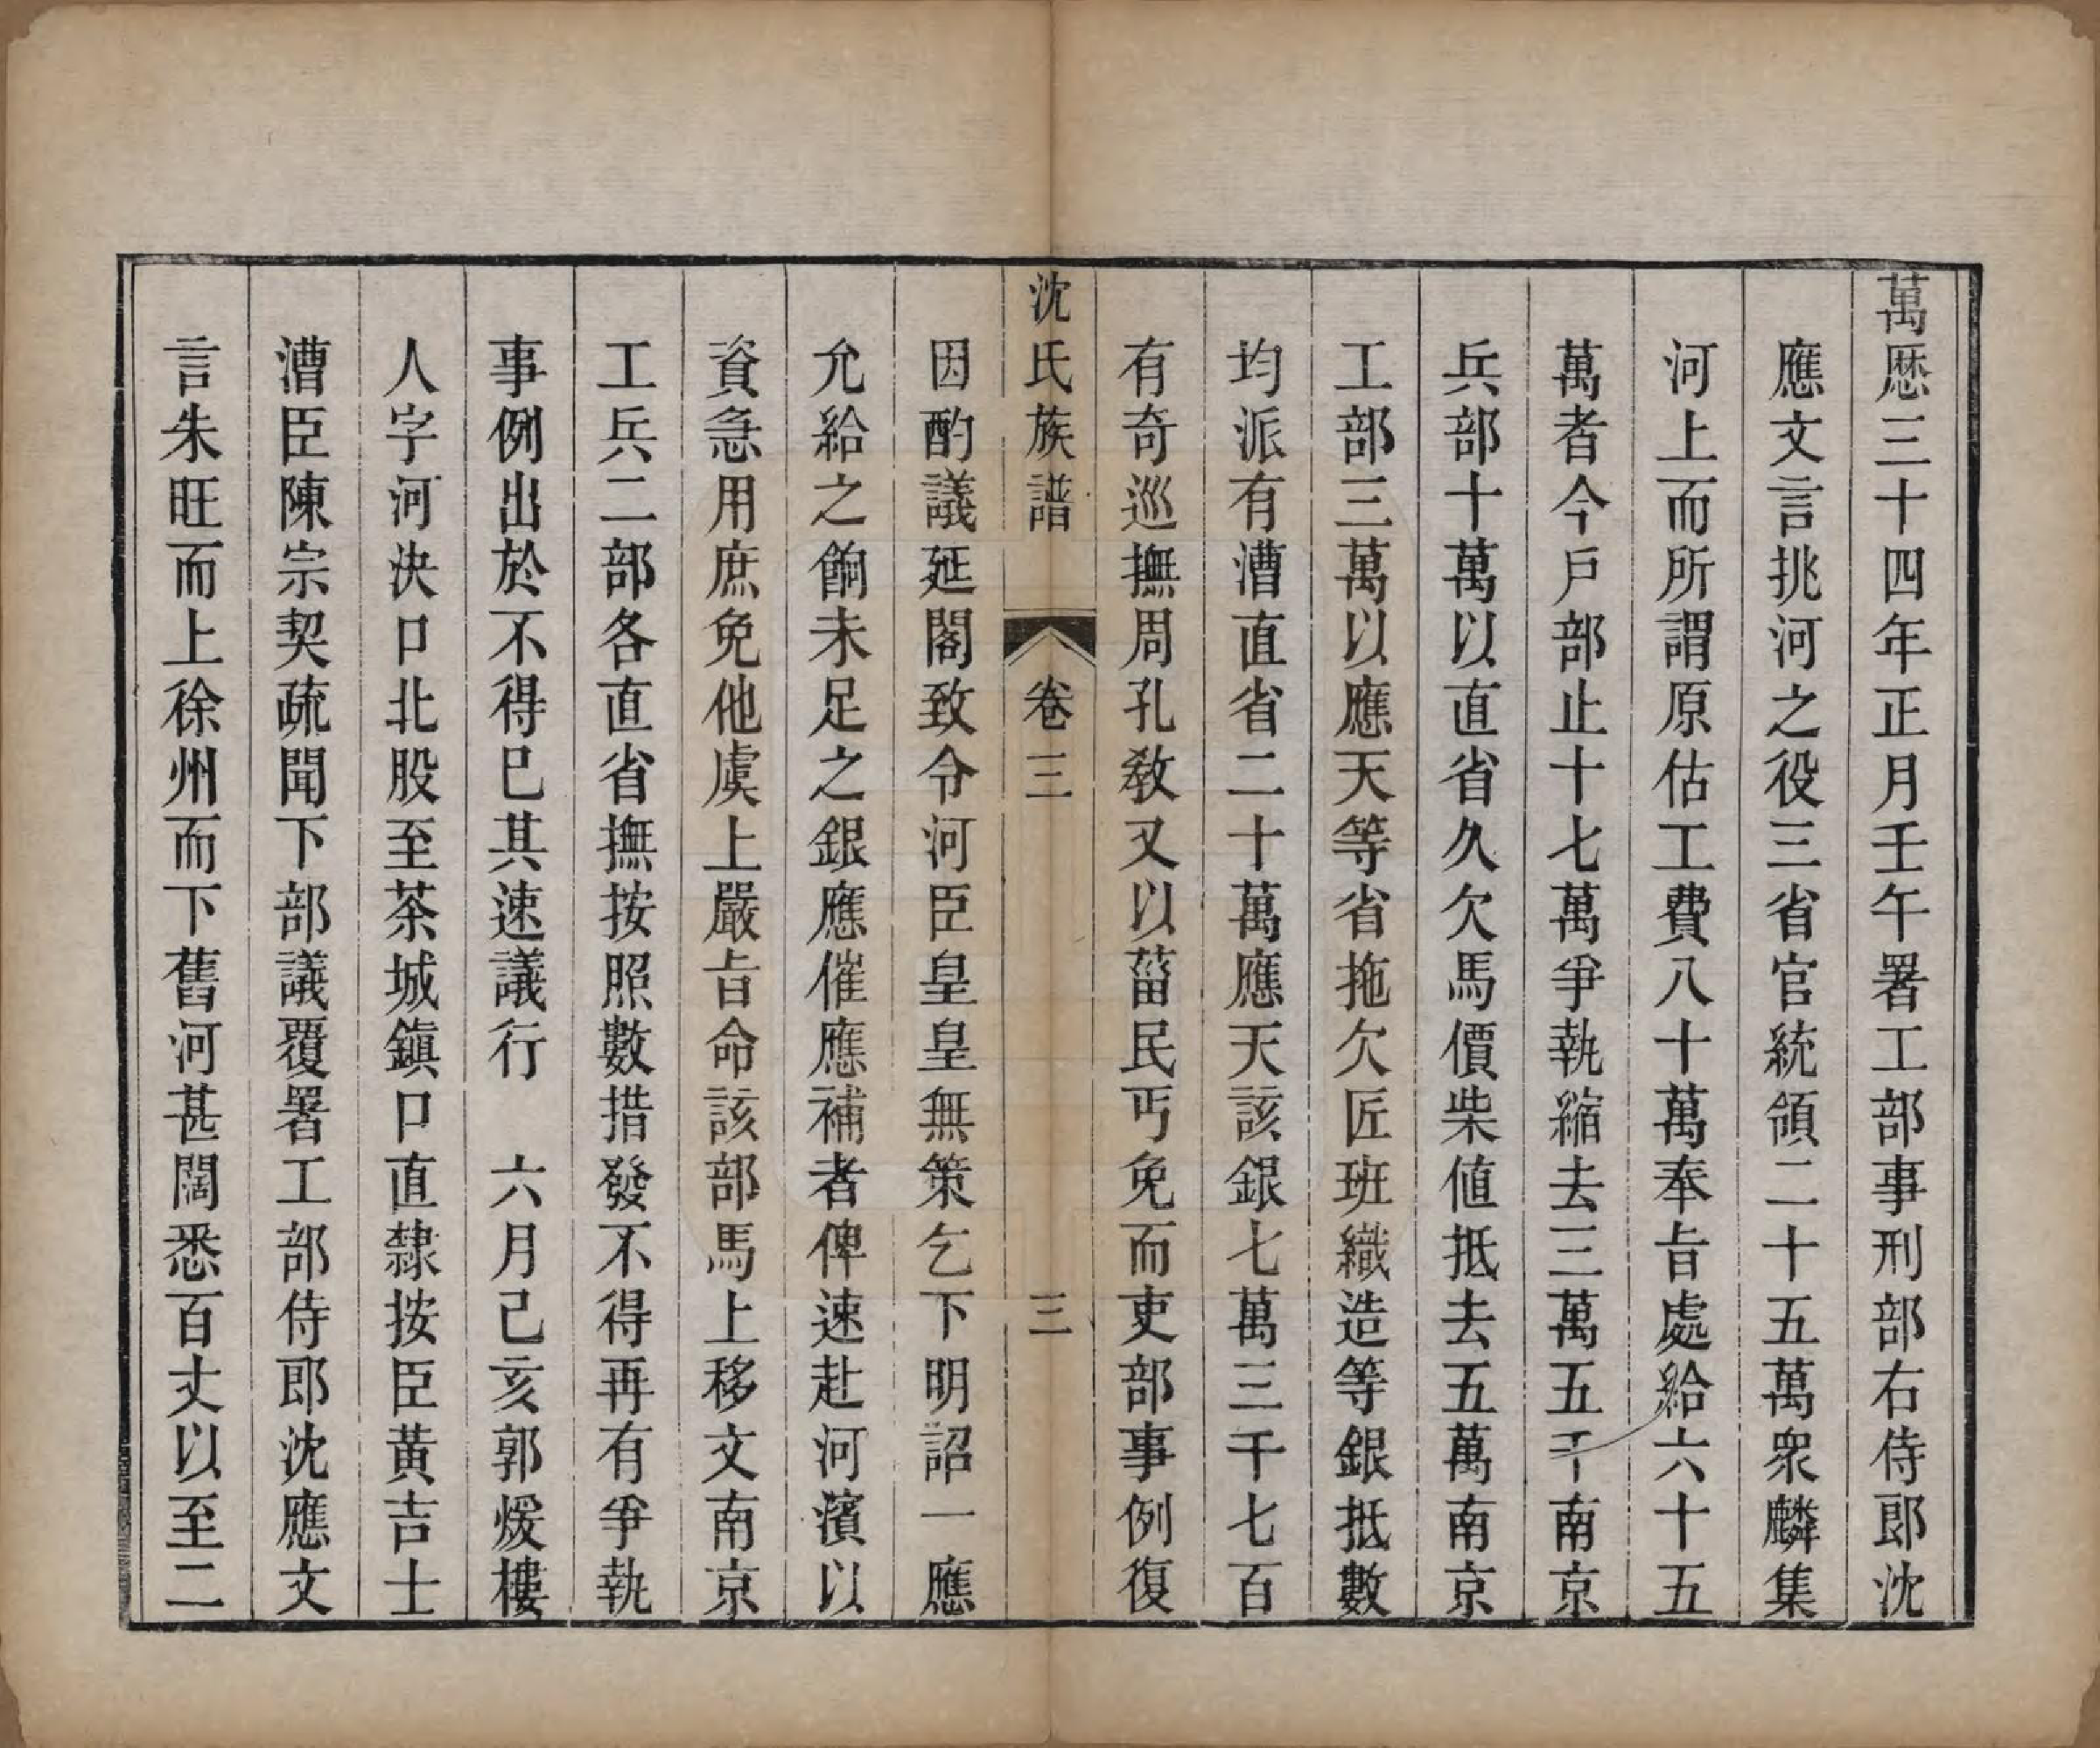 萬厯三十四年正月壬午署工部事刑部右侍郎沈
應文言挑河之役三省官統領二十五萬衆麟集
河上而所謂原估工費八十萬奉旨處給六十五
萬者今戶部止十七萬爭執縮去三萬五千南京
兵部十萬以直省久欠馬價柴値抵去五萬南京
工部三萬以應天等省拖欠匠班織造等銀抵數
均派有漕直省二十萬應天該銀七萬三千七百
有奇巡撫周孔敎又以菑民丐免而吏部事例復
沈氏族譜 卷三 三
因酌議延閣致令河臣皇皇無策乞下明詔一應
允給之餉未足之銀應催應補者俾速赴河濱以
資急用庶免他虞上嚴旨命該部馬上移文南京
工兵二部各直省撫按照數措發不得再有爭執
事例出於不得已其速議行 六月己亥郭煖樓
人字河決口北股至茶城鎮口直隸按臣黃吉士
漕臣陳宗契疏聞下部議覆署工部侍郎沈應文
言朱旺而上徐州而下舊河甚闊悉百丈以至二